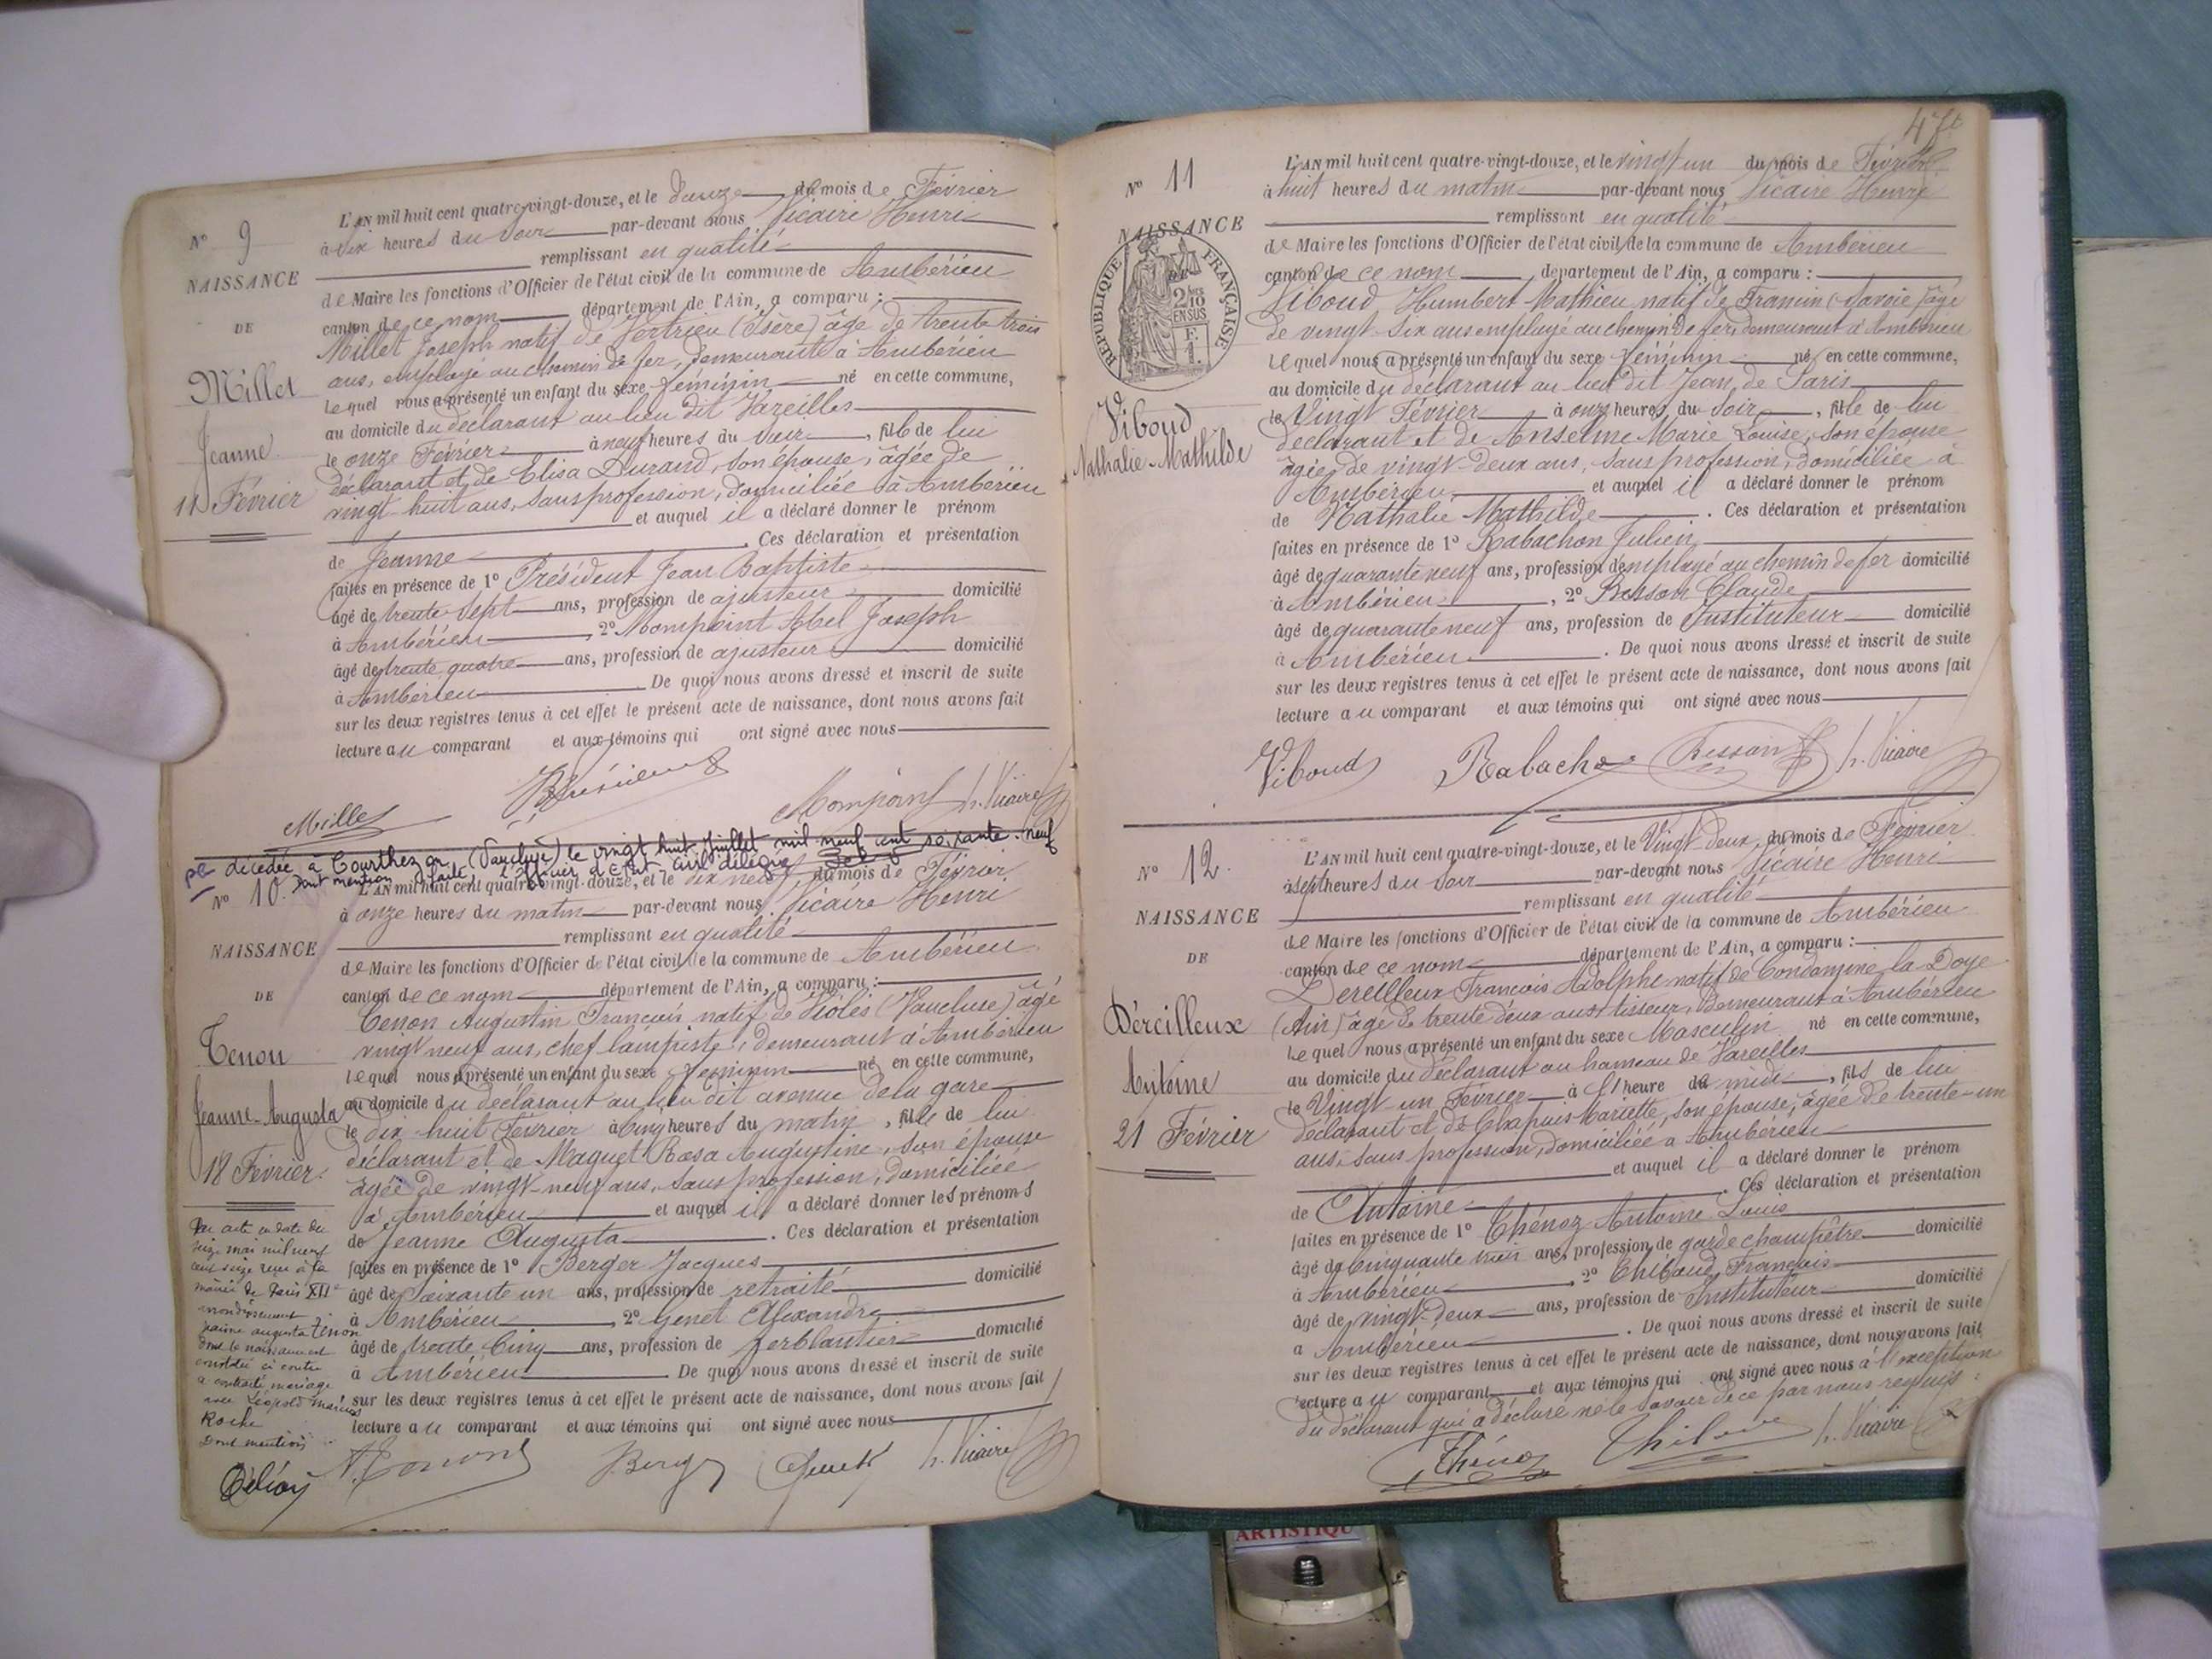 N° 9
NAISSANCE
DE
Millet
Jeanne
11 Février
L'AN mil huit cent quatre-vingt-douze, et le douze du mois de Février
à six heures du soir par-devant nous Vicaire Henri
remplissant en qualité
de Maire les fonctions d'Officier de l'état civil de la commune de Ambérieu
canton de ce nom département de l'Ain, a comparu :
Millet Joseph natif de Vertrieu (Isère) âgé de trente trois
ans, employé au chemin de fer, demeurant à Ambérieu
lequel nous a présenté un enfant du sexe féminin né en cette commune,
au domicile du déclarant au lieu dit Vareilles
le onze Février à neuf heures du soir, fille de lui
déclarant et de Elisa Durand, son épouse, âgée de
vingt-huit ans, sans profession, domiciliée à Ambérieu
et auquel il a déclaré donner le prénom
de Jeanne. Ces déclaration et présentation
faites en présence de 1° Président Jean Baptiste
âgé de trente-sept ans, profession de ajusteur domicilié
à Ambérieu, 2° Mompoint Abel Joseph
âgé de trente quatre ans, profession de ajusteur domicilié
à Ambérieu De quoi nous avons dressé et inscrit de suite
sur les deux registres tenus à cet effet le présent acte de naissance, dont nous avons fait
lecture au comparant et aux témoins qui ont signé avec nous
Millet Président Mompoint h. Vicaire
décédée à Courthezon (Vaucluse) le vingt huit Juillet mil neuf cent soixante-neuf
Dont mention faite, L'officier d'Etat civil délégué
N° 10.
NAISSANCE
DE
Tenon
Jeanne-Augusta
18 Février.
L'AN mil huit cent quatre-vingt-douze, et le dix neuf du mois de Février
à onze heures du matin par-devant nous Vicaire Henri
remplissant en qualité
de Maire les fonctions d'Officier de l'état civil de la commune de Ambérieu
canton de ce nom département de l'Ain, a comparu :
Tenon Augustin François natif de Violès (Vaucluse) âgé
vingt neuf ans, chef lampiste, demeurant à Ambérieu
lequel nous a présenté un enfant du sexe féminin né en cette commune,
au domicile du déclarant au lieu dit avenue de la gare
le dix-huit Février à cinq heures du matin, fille de lui
déclarant et de Maguet Rosa Augustine, son épouse
âgée de vingt-neuf ans, sans profession, domiciliée
à Ambérieu et auquel il a déclaré donner les prénoms
de Jeanne Augusta. Ces déclaration et présentation
faites en présence de 1° Berger Jacques
âgé de soixante un ans, profession de retraité domicilié
à Ambérieu, 2° Genet Alexandre
âgé de trente Cinq ans, profession de ferblantier domicilié
à Ambérieu De quoi nous avons dressé et inscrit de suite
sur les deux registres tenus à cet effet le présent acte de naissance, dont nous avons fait
lecture au comparant et aux témoins qui ont signé avec nous
Par acte en date du
seize mai mil neuf
cent seize reçu à la
mairie de Paris XIIe
arrondissement
Jeanne Augusta Tenon
dont la naissance est
constatée ci contre
a contracté mariage
avec Léopold Marius
Roche
Dont mention
A. Tenon J. Berger Genet h. Vicaire
47
N° 11
NAISSANCE
RÉPUBLIQUE FRANÇAISE
2/10 EN SUS
F. 1.
Viboud
Nathalie-Mathilde
L'AN mil huit cent quatre-vingt-douze, et le vingt un du mois de Février
à huit heures du matin par-devant nous Vicaire Henri
remplissant en qualité
de Maire les fonctions d'Officier de l'état civil de la commune de Ambérieu
canton de ce nom, département de l'Ain, a comparu :
Viboud Humbert Mathieu natif de Francin (Savoie) âgé
de vingt-six ans employé au chemin de fer, demeurant à Ambérieu
lequel nous a présenté un enfant du sexe féminin né en cette commune,
au domicile du déclarant au lieu dit Jean de Paris
le Vingt Février à onze heures du soir, fille de lui
déclarant et de Anselme Marie Louise, son épouse
âgée de vingt-deux ans, sans profession, domiciliée à
Ambérieu et auquel il a déclaré donner le prénom
de Nathalie Mathilde. Ces déclaration et présentation
faites en présence de 1° Rabachon Julien
âgé de quarante neuf ans, profession d'employé au chemin de fer domicilié
à Ambérieu, 2° Besson Claude
âgé de quarante neuf ans, profession de Instituteur domicilié
à Ambérieu. De quoi nous avons dressé et inscrit de suite
sur les deux registres tenus à cet effet le présent acte de naissance, dont nous avons fait
lecture au comparant et aux témoins qui ont signé avec nous
Viboud Rabachon Besson h. Vicaire
N° 12.
NAISSANCE
DE
Déreilleux
Antoine
21 Février
L'AN mil huit cent quatre-vingt-douze, et le Vingt Deux du mois de Février
à sept heures du soir par-devant nous Vicaire Henri
remplissant en qualité
de Maire les fonctions d'Officier de l'état civil de la commune de Ambérieu
canton de ce nom département de l'Ain, a comparu :
Dereilleux François Adolphe natif de Condamine la Doye
(Ain) âgé de trente deux ans tisseur, demeurant à Ambérieu
lequel nous a présenté un enfant du sexe Masculin né en cette commune,
au domicile du déclarant au hameau de Vareilles
le Vingt un Février à 1 heure de midi, fils de lui
déclarant et de Chapuis Mariette, son épouse, âgée de trente-un
ans, sans profession, domiciliée à Ambérieu
et auquel il a déclaré donner le prénom
de Antoine. Ces déclaration et présentation
faites en présence de 1° Thénoz Antoine Louis
âgé de Cinquante trois ans, profession de garde champêtre domicilié
à Ambérieu, 2° Thibaud François
âgé de vingt-deux ans, profession de Instituteur domicilié
à Ambérieu. De quoi nous avons dressé et inscrit de suite
sur les deux registres tenus à cet effet le présent acte de naissance, dont nous avons fait
lecture au comparant et aux témoins qui ont signé avec nous à l'exception
du déclarant qui a déclaré ne le savoir de ce par nous requis :
Thénoz h. Vicaire
ARTISTIQU